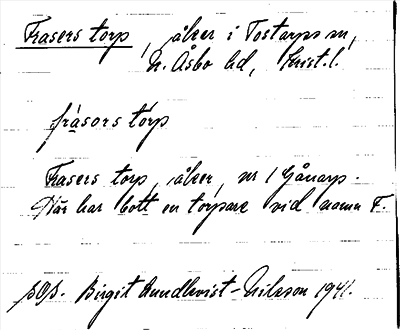 Frasers torp, åker i Tostarps sn,
N. Åsbo hd, Krist. l.
frásors tórp
Frasers torp, åker, nr 1 Gånarp.
Där har bott en torpare vid namn F.
Birgit Lundkvist-Nilsson 1941.